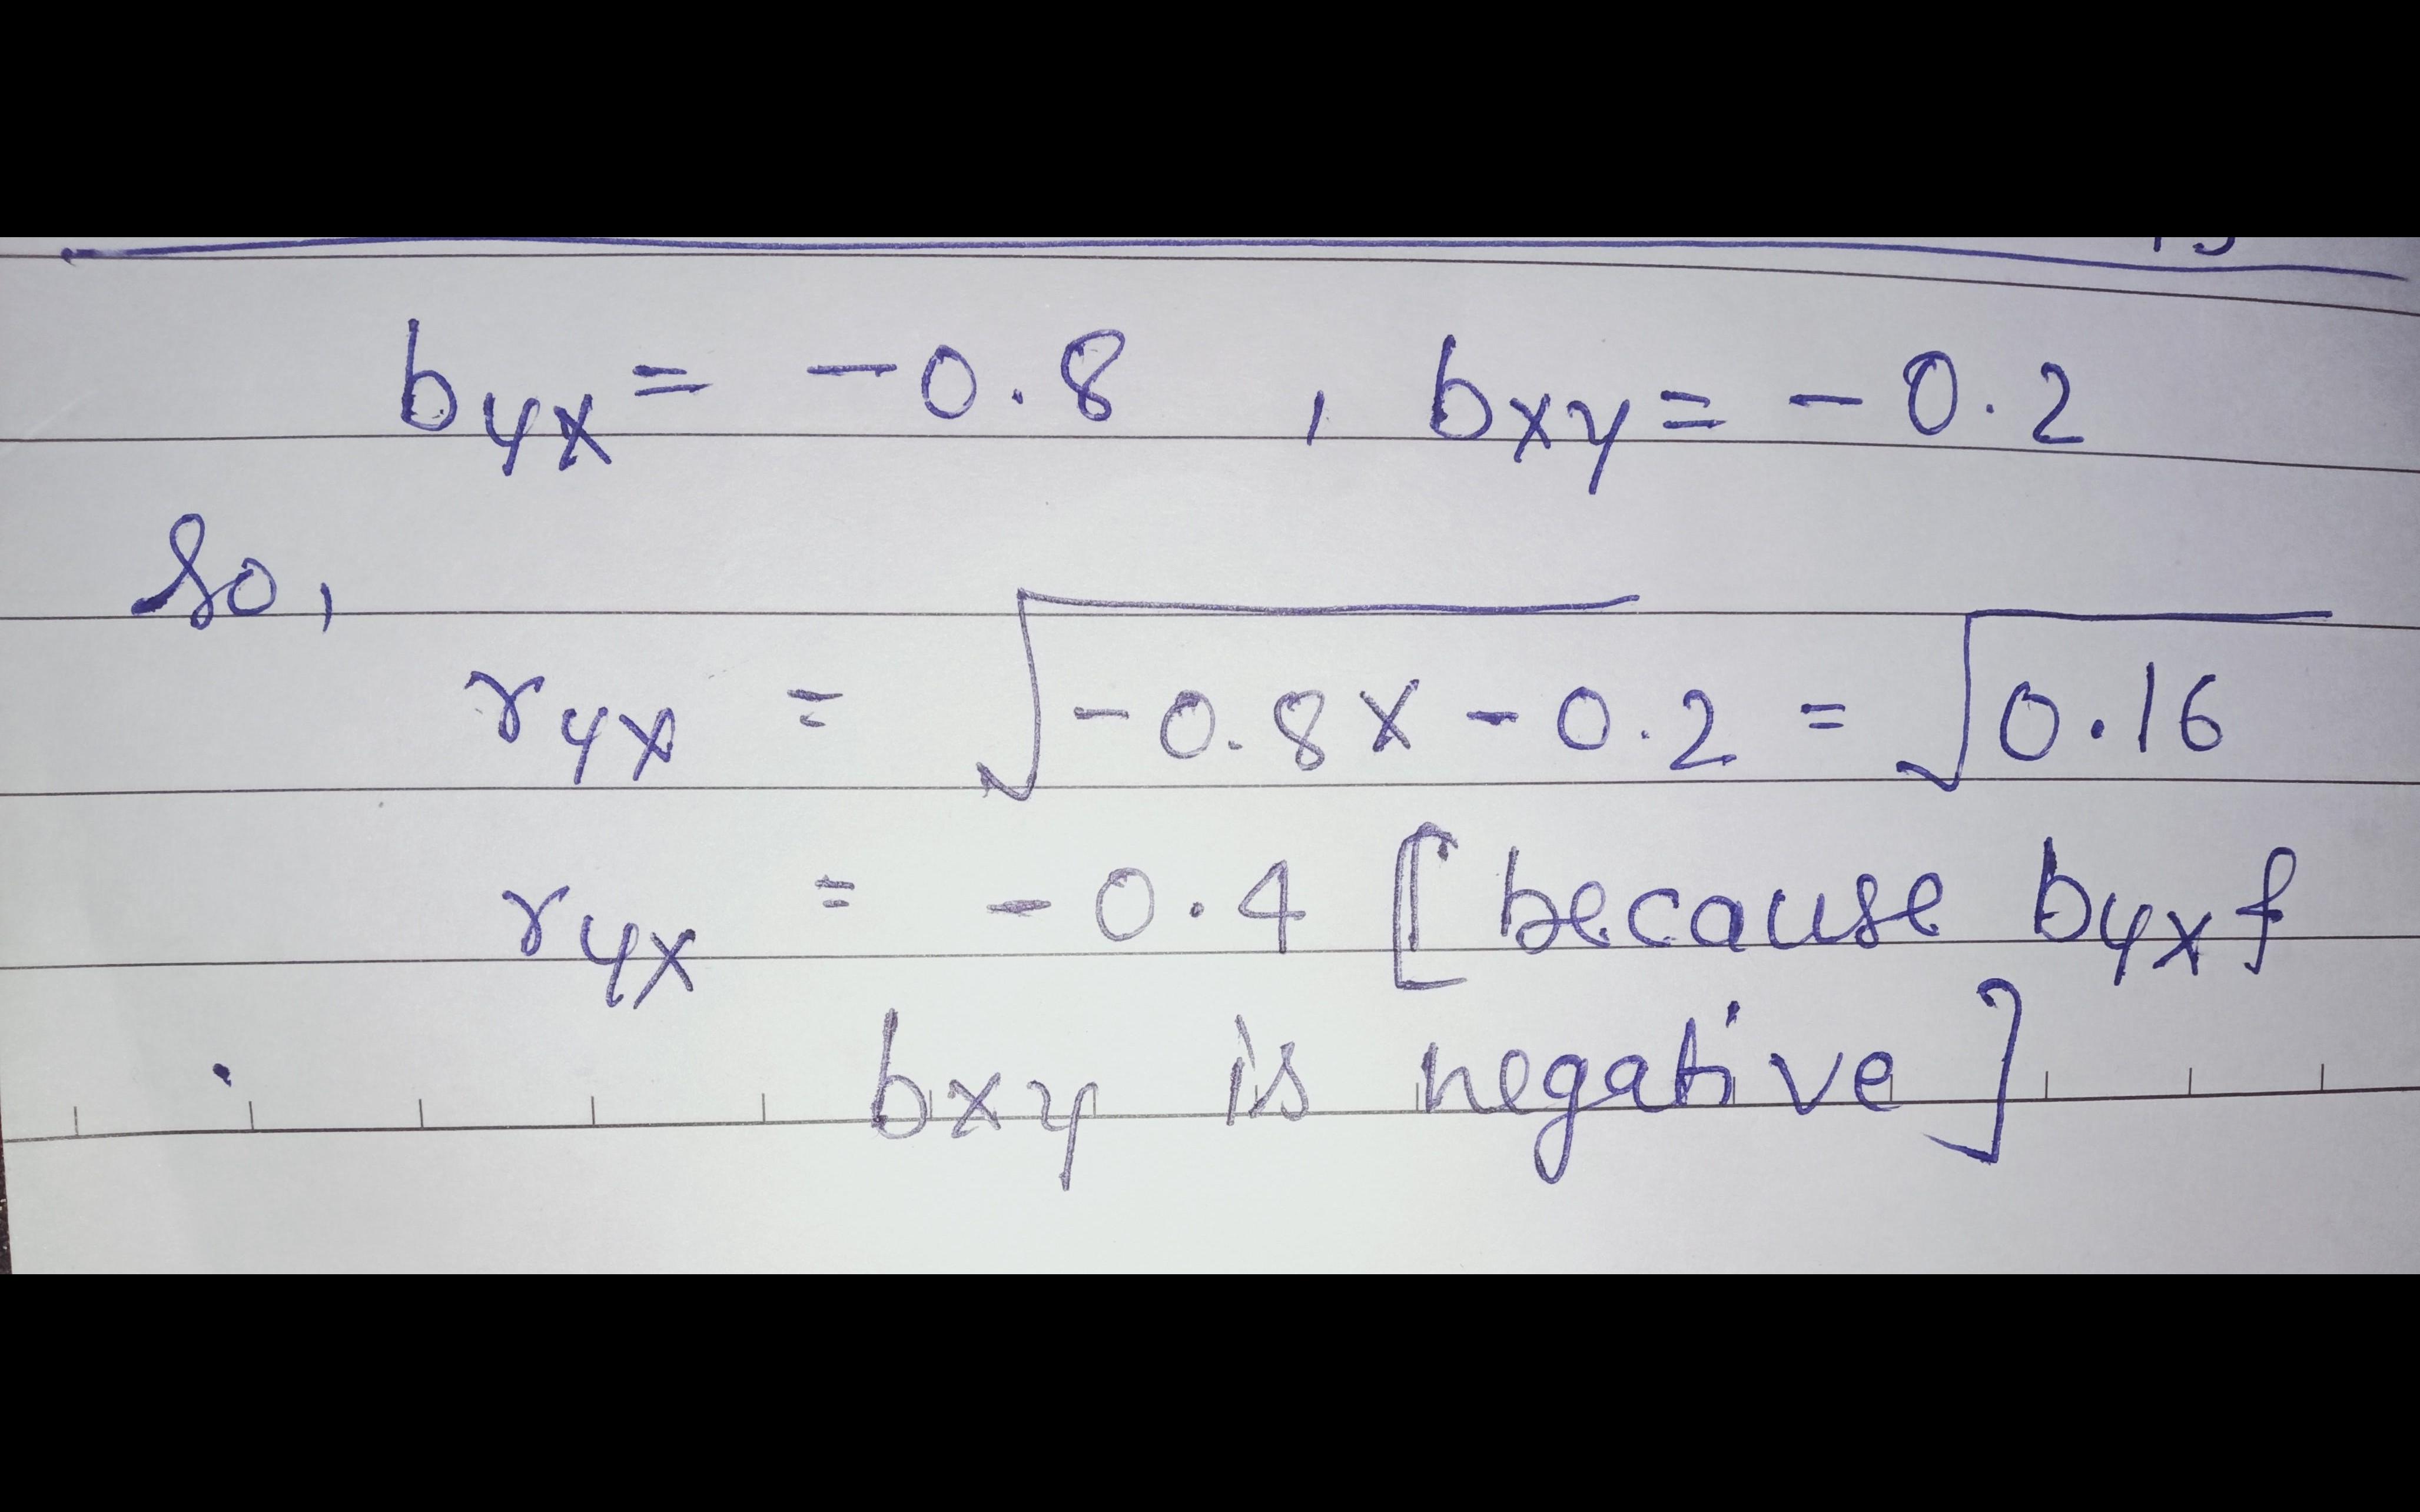 byx = -0.8 , bxy = -0.2
So,
ryx = √-0.8 x -0.2 = √0.16
ryx = -0.4 [because byx &
bxy is negative]